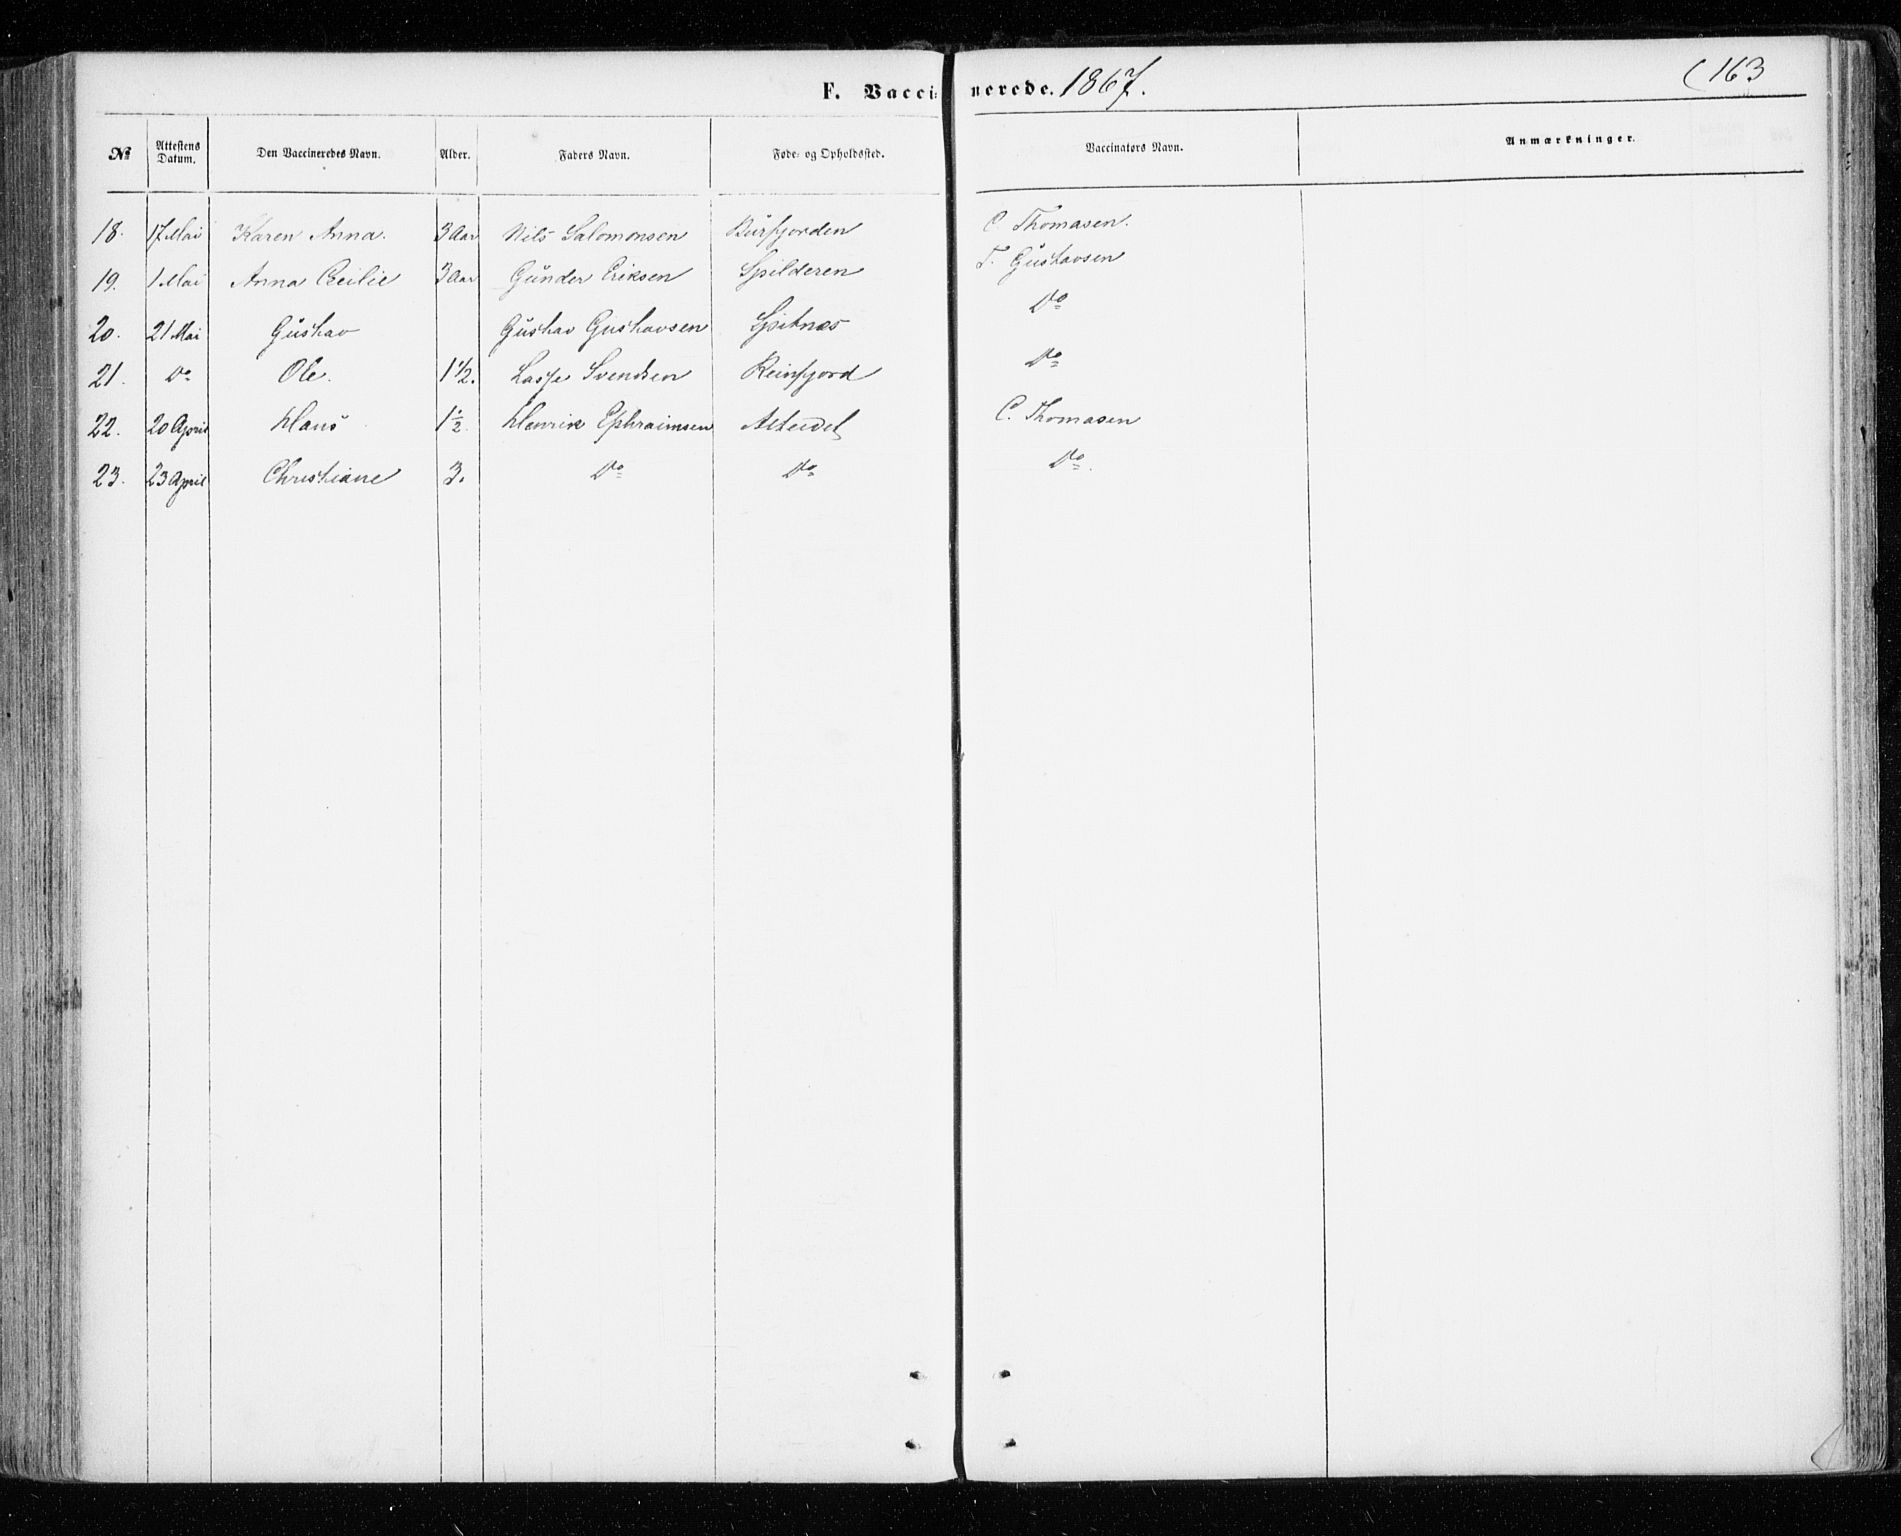 F. Vaccinerede. 1867. 163
№ Attestens Datum. Den Vaccineredes Navn. Alder. Faders Navn. Føde- og Opholdssted. Vaccinatørs Navn. Anmærkninger.
18. 17 Mai Karen Anna. 3 Aar Nils Salomonsen Burfjorden C. Thomasen.
19. 1 Mai Anna Cecilie 3 Aar Gunder Eriksen Spilderen T. Gustavsen
20. 21 Mai Gustav Gustav Gustavsen Spitnæs Do
21. Do Ole. 1 1/2. Lasse Svendsen Reinfjord Do
22. 20 April Hans 1 1/2. Henrik Ephraimsen Alteidet C. Thomasen
23. 23 April Christiane 3. Do Do Do.